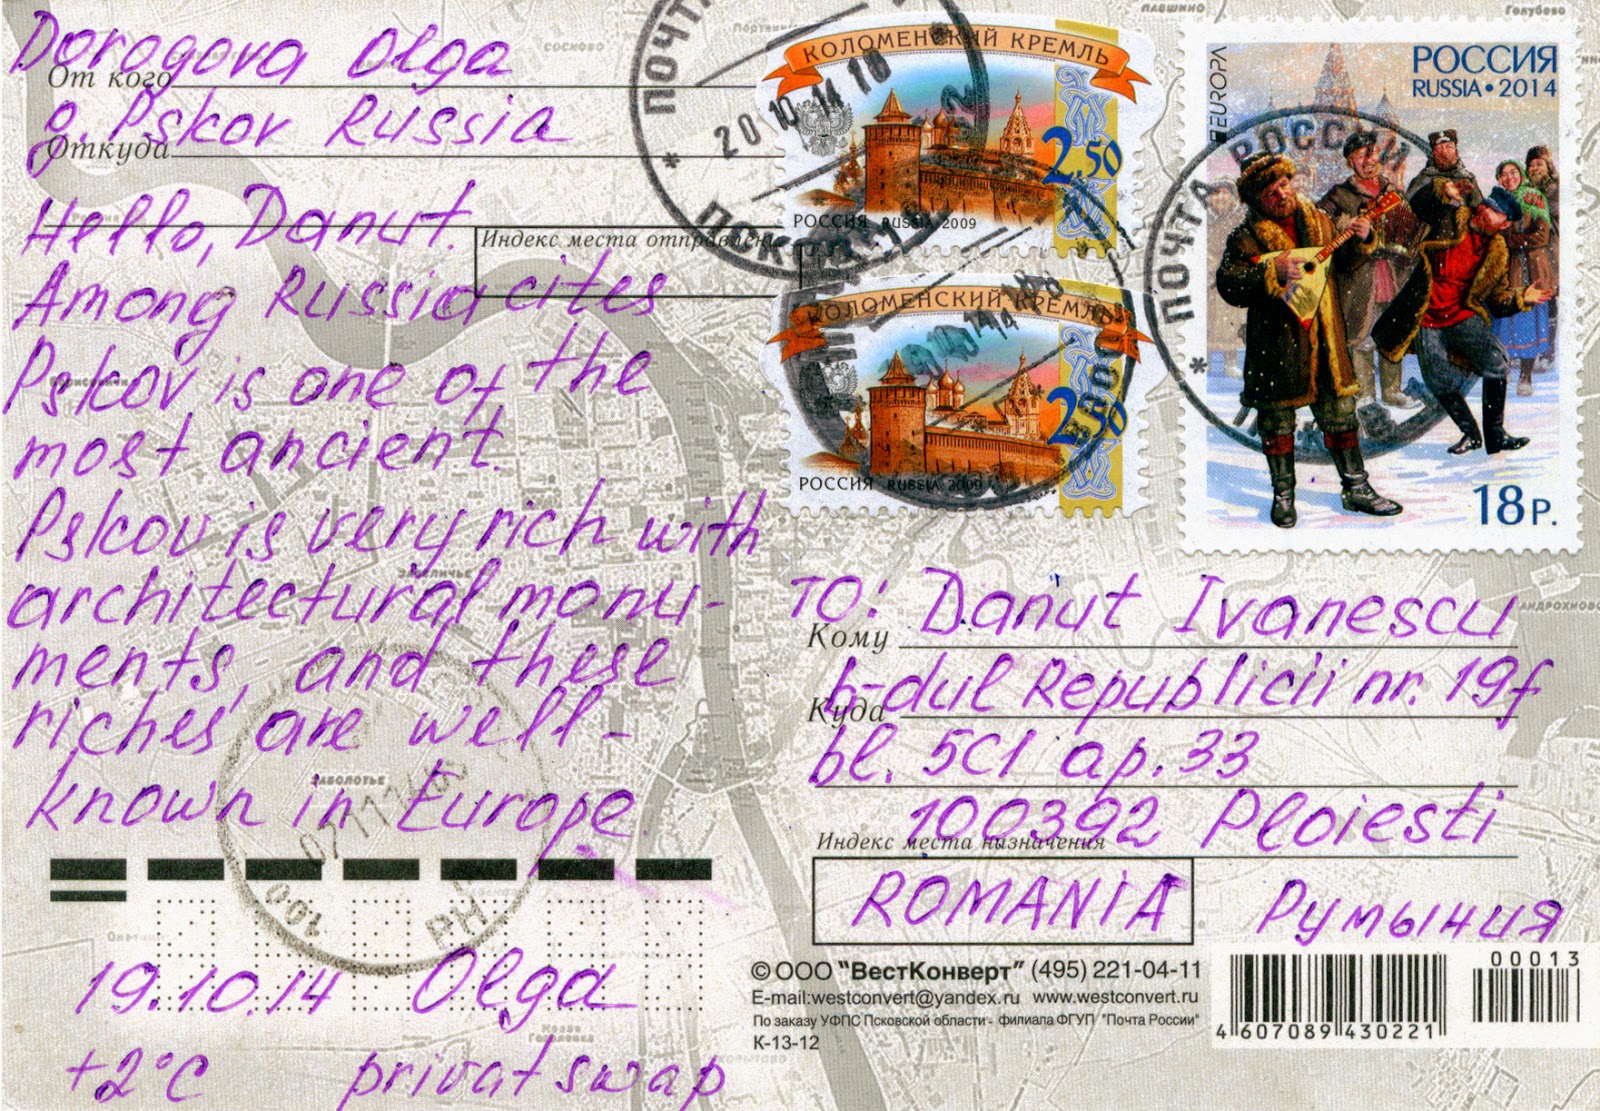 Dorogova Olga
От кого
g. Pskov Russia
Откуда
Hello, Danut.
Индекс места отправлен
Among Russia cites
Pskov is one of the
most ancient.
Pskov is very rich with
architectural monu-
ments, and these
riches are well-
known in Europe.
19.10.14 Olga
+2°C privat swap
ПОЧТА
20 10 14 18
КОЛОМЕНСКИЙ КРЕМЛЬ
2,50
РОССИЯ RUSSIA 2009
КОЛОМЕНСКИЙ КРЕМЛЬ
2,50
РОССИЯ RUSSIA 2009
EUROPA
РОССИЯ
RUSSIA • 2014
ПОЧТА РОССИИ
18 Р.
TO: Danut Ivanescu
Кому
b-dul Republicii nr. 19f
Куда
bl. 5C1 ap. 33
100392 Ploiesti
Индекс места назначения
ROMANIA Румыния
© ООО "ВестКонверт" (495) 221-04-11
E-mail:westconvert@yandex.ru www.westconvert.ru
По заказу УФПС Псковской области - филиала ФГУП "Почта России"
К-13-12
4 607089 430221
00013
СОСНОВО
ЗАБОЛОТЬЕ
001
PH